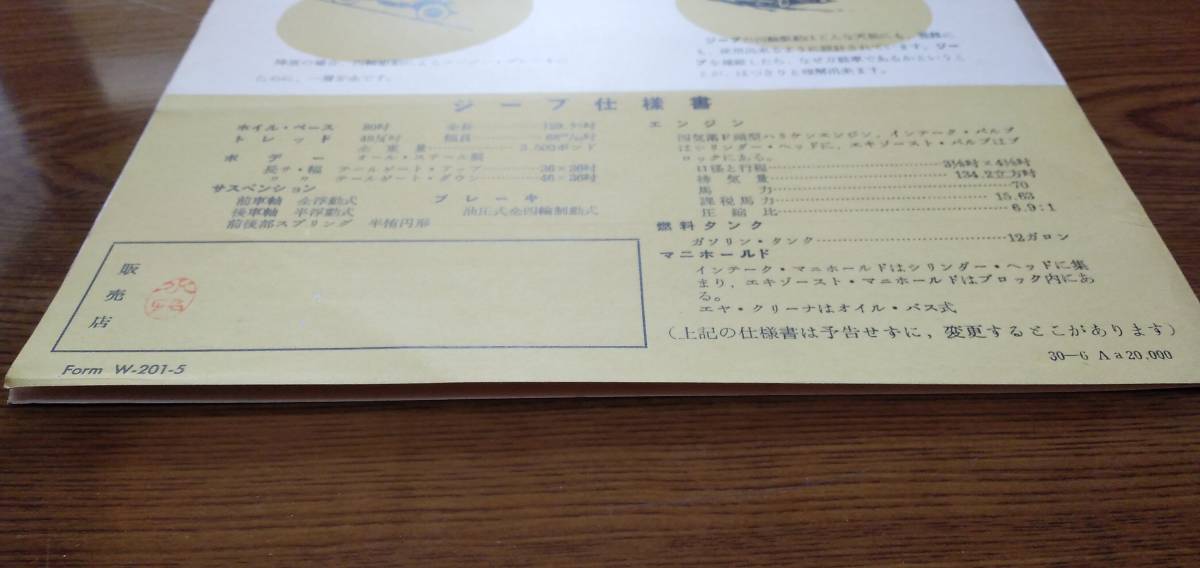 も、使用出来るように設計されています。ジー
プを操縦したら、なぜ万能車であるかというこ
とが、はつきりと理解出来ます。
ために、一層安全です。
ジープ仕様書
ホイル・ベース 80吋 全長
トレッド 幅員
全重量 3.500ポンド
ボデー オール・スチール製
長サ・幅 テールゲート・アップ 36×36吋
〃 〃 テールゲート・ダウン 46×36吋
サスペンション
前車軸 全浮動式
後車軸 半浮動式
前後部スプリング 半楕円形
ブレーキ
油圧式全四輪制動式
エンジン
四気筒F頭型ハリケンエンジン、インテーク・バルブ
はシリンダー・ヘッドに、エキゾースト・バルブはブ
ロックにある。
口径と行程 3⅛吋×4⅜吋
排気量 134.2立方吋
馬力 70
課税馬力 15.63
圧縮比 6.9:1
燃料タンク
ガソリン・タンク 12ガロン
マニホールド
インテーク・マニホールドはシリンダー・ヘッドに集
まり、エキゾースト・マニホールドはブロック内にあ
る。
エヤ・クリーナはオイル・バス式
(上記の仕様書は予告せずに、変更することがあります)
販売店
Form W-201-5
30—6 A a 20,000